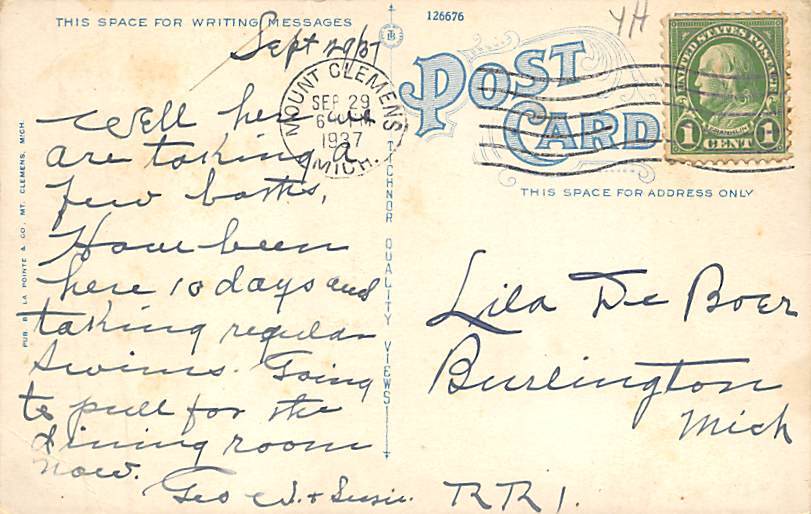 THIS SPACE FOR WRITING MESSAGES
126676
YH
Sept 29/37
MOUNT CLEMENS
SEP 29
6 PM
1937
MICH.
POST
CARD
UNITED STATES POSTAGE
FRANKLIN
1 CENT 1
THIS SPACE FOR ADDRESS ONLY
Well here we
are taking a
few baths,
Have been
here 10 days and
taking regular
swims. Going
to pull for the
dining room
now.
Geo W. + Susie.
Lila De Boer
Burlington
Mich
RR 1.
PUB. BY LA POINTE & CO., MT. CLEMENS, MICH.
TICHNOR QUALITY VIEWS